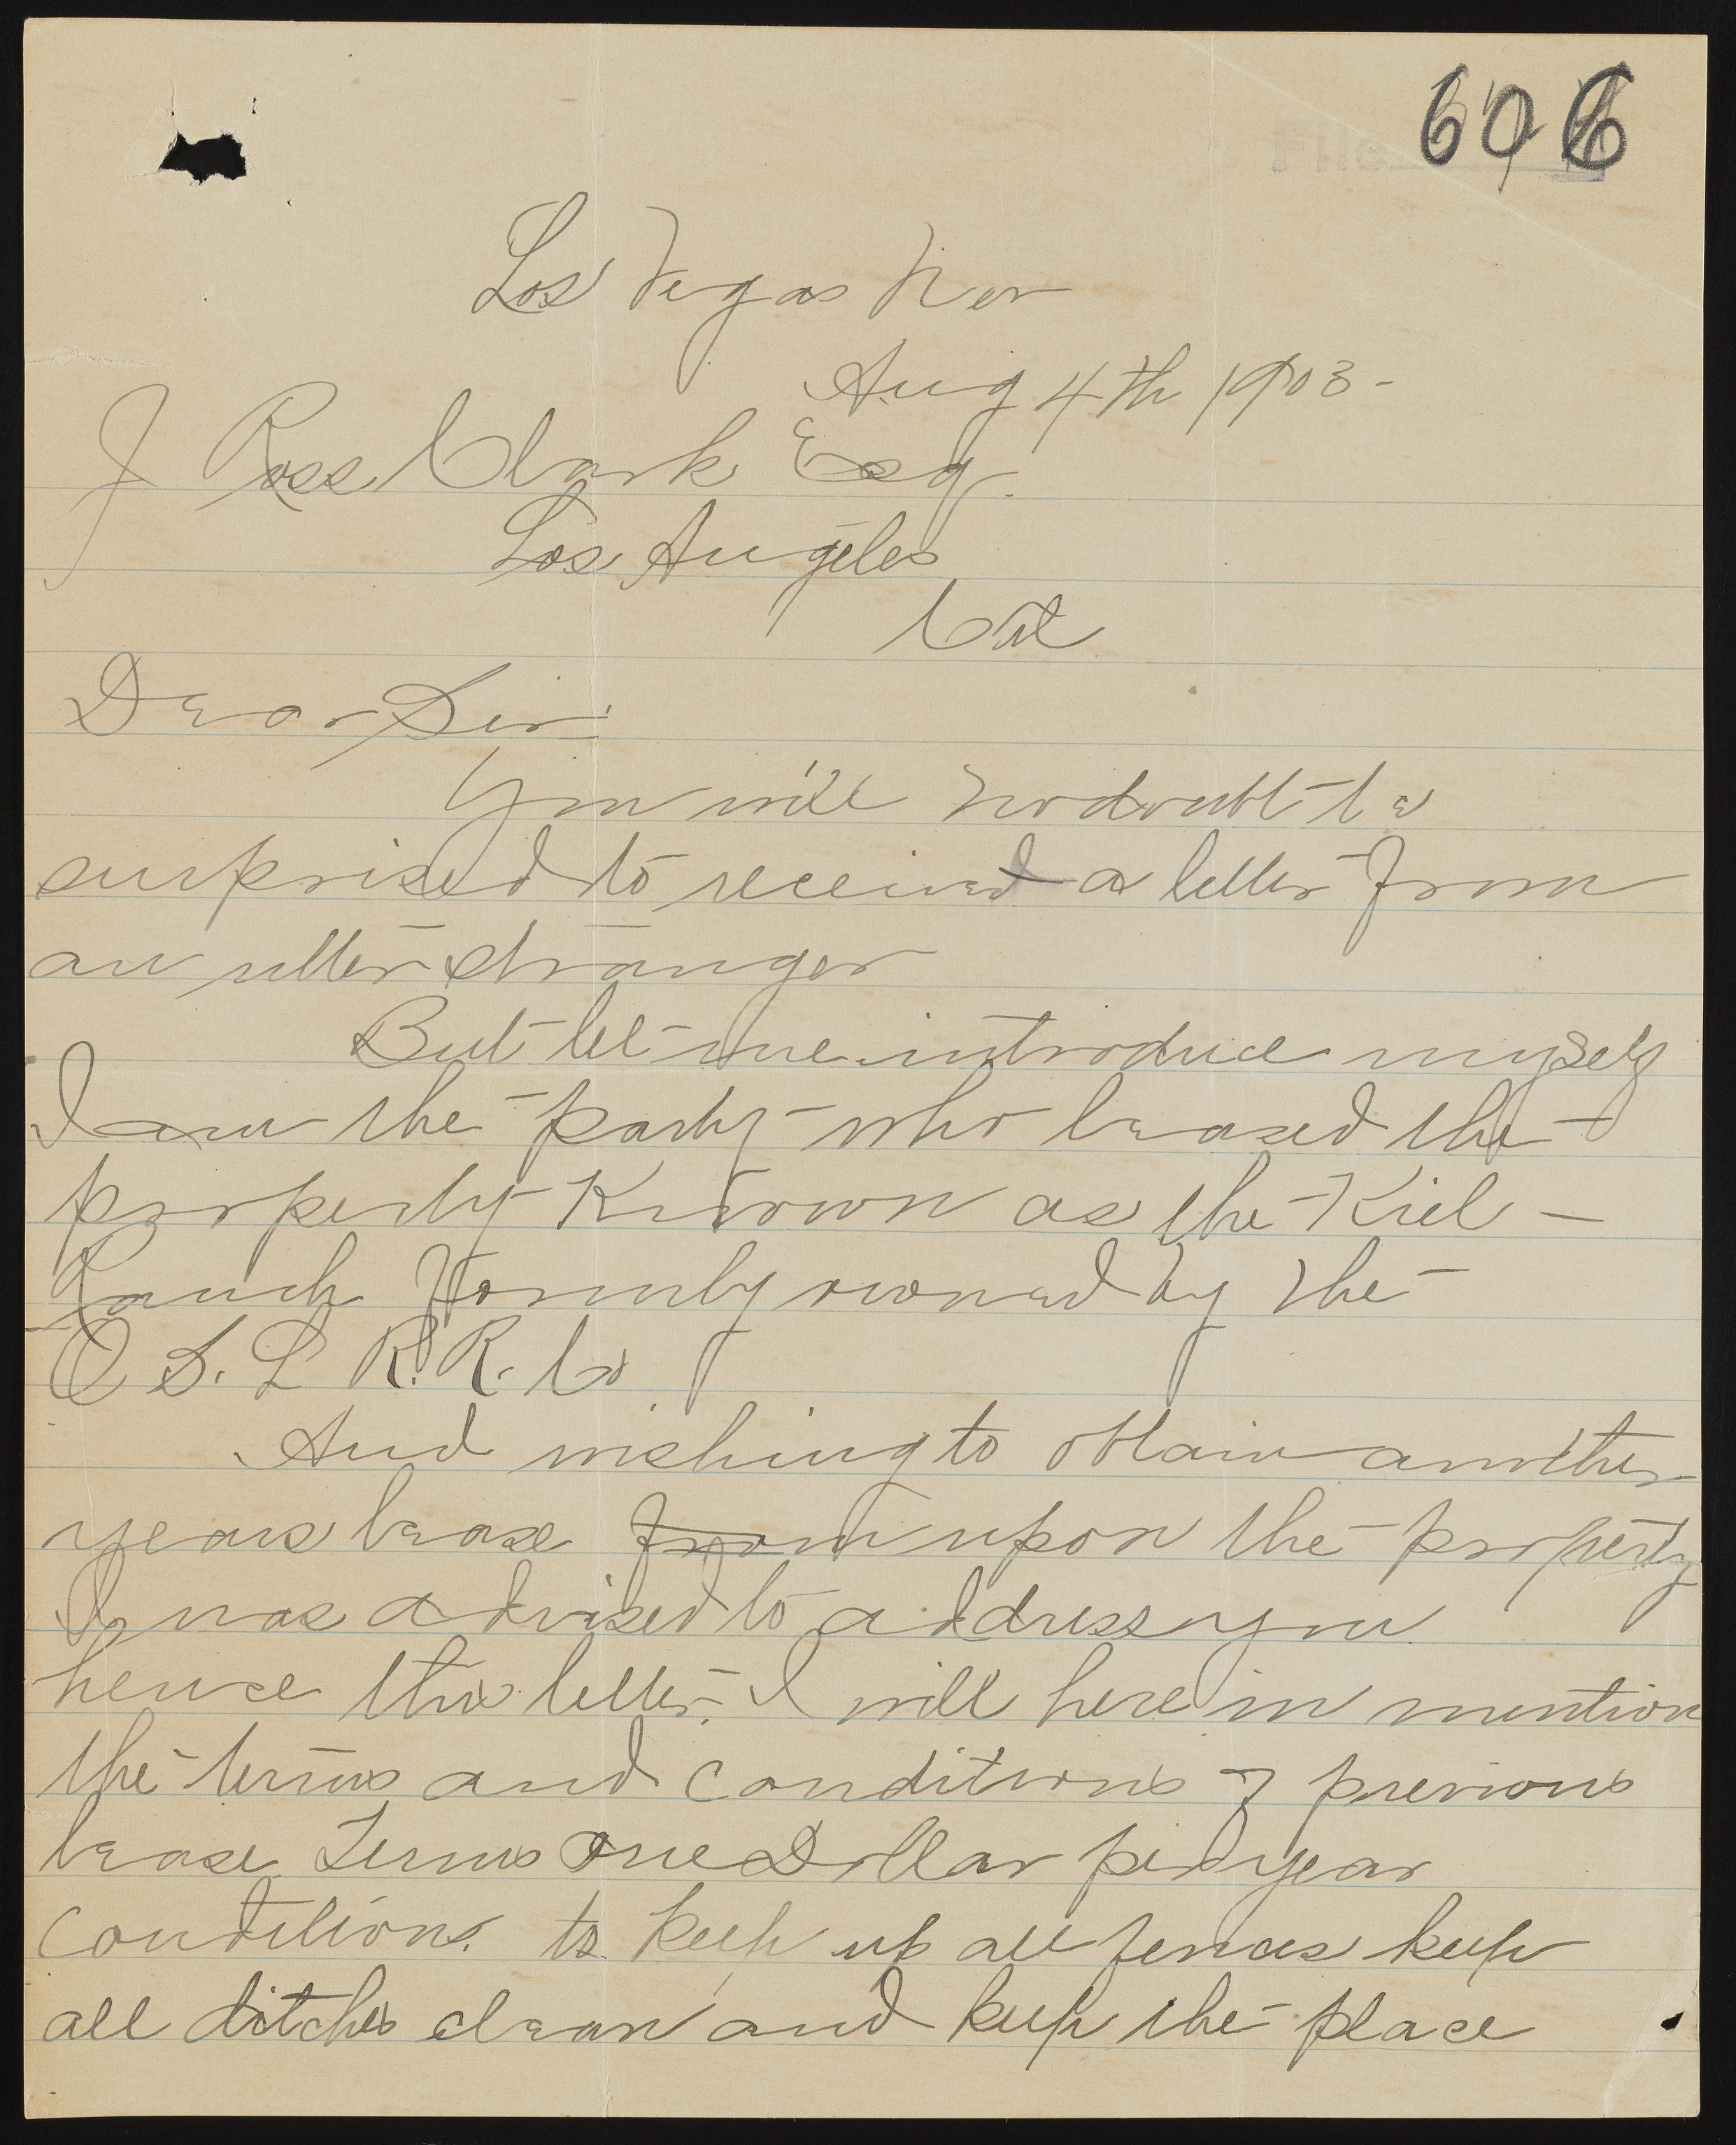 606
Los Vegas Nev
Aug 4th 1903-
J Ross Clark Esq.
Los Angeles
Cal
Dear Sir:
You will no doubt be
surprised to received a letter from
an utter stranger
But let me introduce myself
I am the party who leased the
property Known as the Kiel -
Ranch Formerly owned by the
O S. L R.R. Co
And wishing to obtain another
years lease from upon the property
I was advised to address you
hence this letter. I will here in mention
the terms and conditions of previous
lease. Terms One Dollar per year
Conditions. to keep up all fences keep
all ditches clean and keep the place